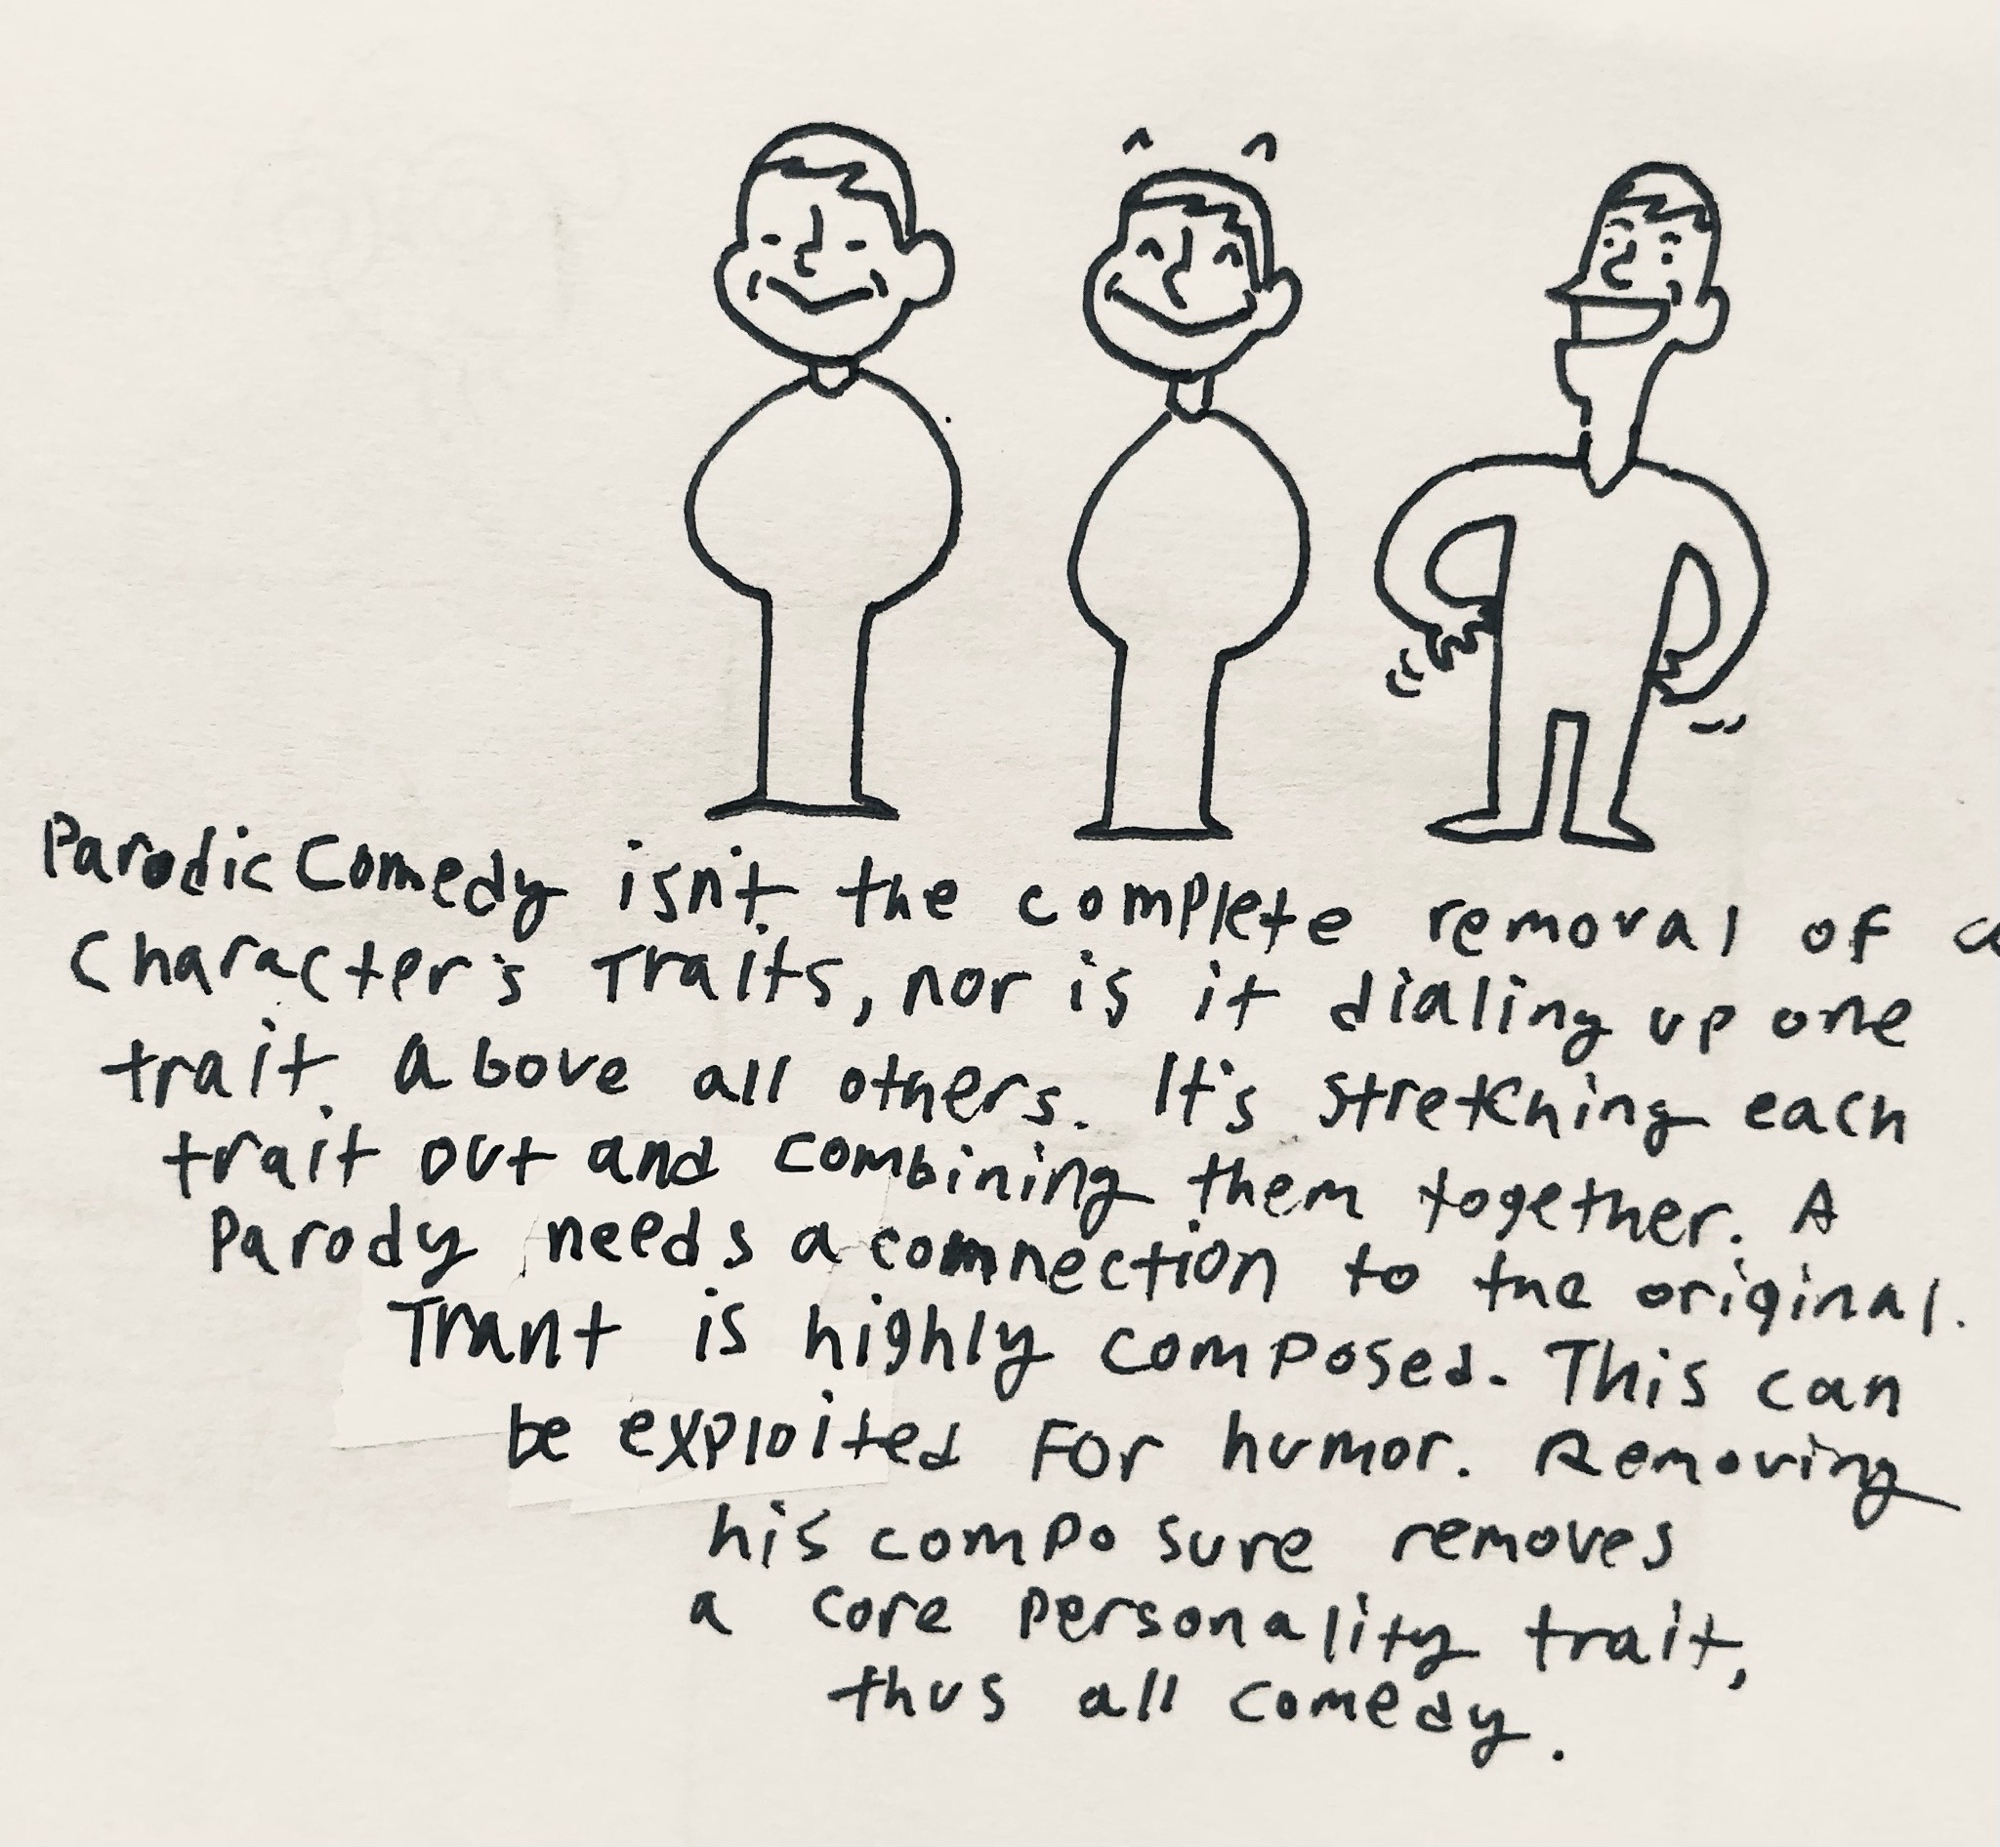 Parodic Comedy isn't the complete removal of a
Character's Traits, nor is it dialing up one
trait above all others. It's stretching each
trait out and combining them together. A
Parody needs a comnection to the original.
Trant is highly composed. This can
be exploited for humor. Removing
his composure removes
a core personality trait,
thus all comedy.